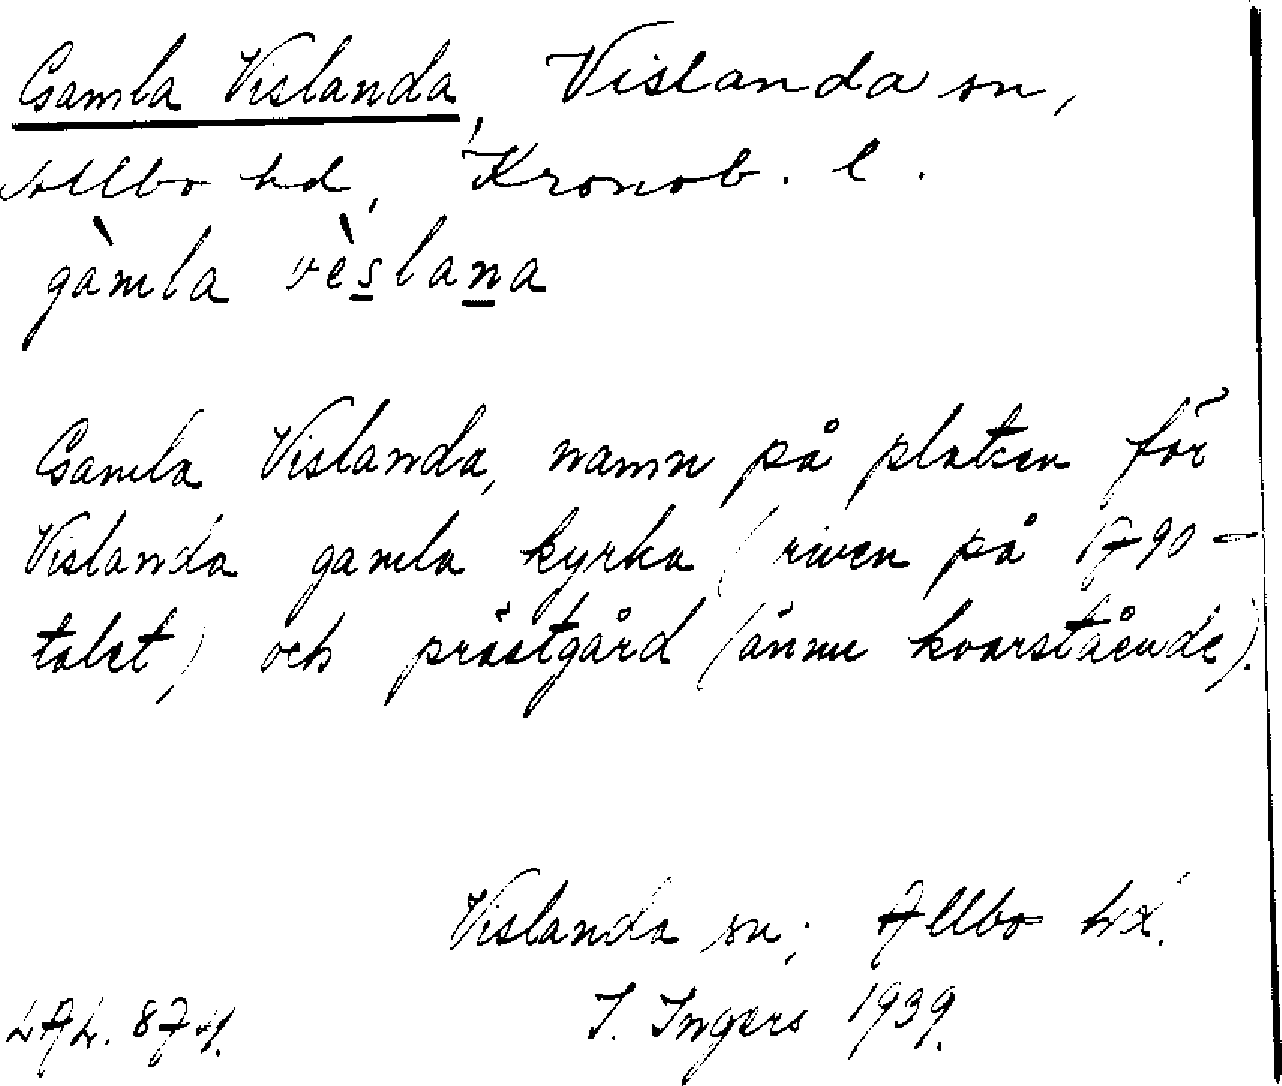 Gamla Vislanda, Vislanda sn,
Allbo hd, Kronob. l.
gàmla vèslana
Gamla Vislanda, namn på platsen för
Vislanda gamla kyrka (riven på 1790-
talet,) och prästgård (ännu kvarstående).
Vislanda sn; Allbo hd.
I. Ingers 1939.
LAL.